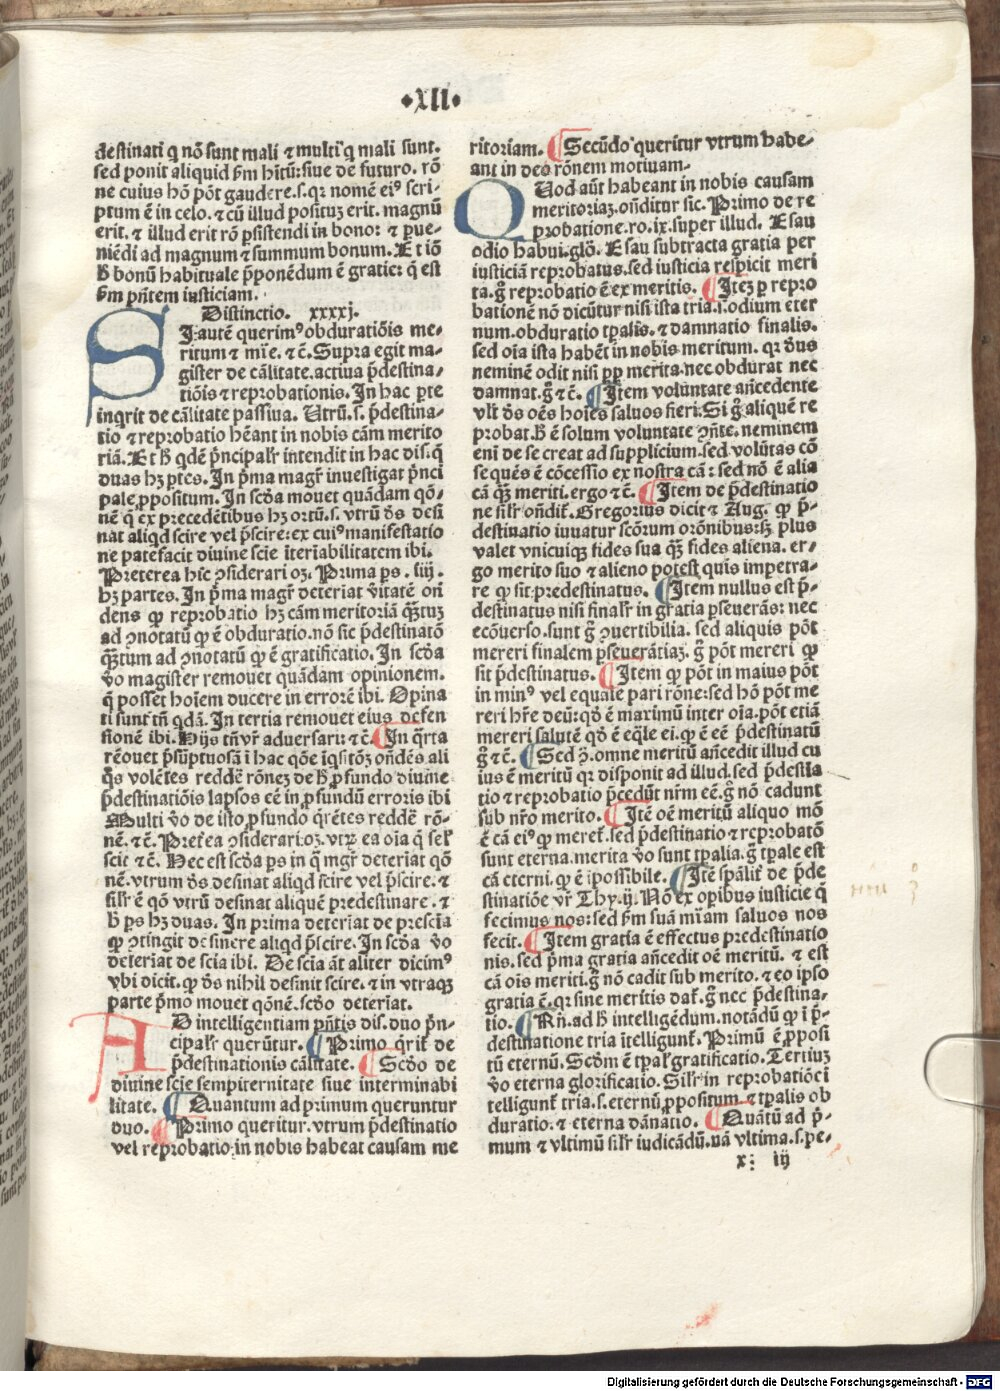 •XLI•
destinati q̄ nō sunt mali ⁊ multi q̄ mali sunt.
sed ponit aliquid ẜm hītū: siue de futuro. rō
ne cuius hō pōt gaudere. s. qꝛ nomē ei⁹ scri-
ptum ē in celo. ⁊ cū illud posituꝫ erit. magnū
erit. ⁊ illud erit rō ꝑsistendi in bono: ⁊ ꝑue-
niēdi ad magnum ⁊ summum bonum. Et iō
ħ bonū habituale p̄ponēdum ē gratie: q̄ est
ẜm pn̄tem iusticiam.
Distinctio. xxxxj.
SI autē querim⁹ obduratiōis me-
ritum ⁊ mīe. ⁊ c̄. Supra egit ma-
gister de cālitate. actiua p̄destina-
tiōis ⁊ reprobationis. In hac ꝑte
inqrit de cālitate passiua. Utrū. s. p̄destina-
tio ⁊ reprobatio hēant in nobis cām merito
riā. Et ħ qdē p̄ncipalꝛ intendit in hac dis. q̄
duas hꝫ ptes. In pꝛma magꝛ inuestigat p̄nci
pale ꝓpositum. In scd̄a mouet quādam qō-
nē q̄ ex precedētibus hꝫ ortū. s. vtrū ds̄ desi
nat aliqd scire vel p̄scire: ex cui⁹ manifestatio
ne patefacit diuine scīe īteriabilitatem ibi.
Preterea hīc ꝯsiderari oꝫ. Prima ps. iiij.
hꝫ partes. In pꝛma magꝛ deteriat v̄itatē on̄
dens ꝙ reprobatio hꝫ cām meritoriā qꝫtuꝫ
ad ꝯnotatū ꝙ ē obduratio. nō sic p̄destinatō
qꝫtum ad ꝯnotatū ꝙ ē gratificatio. In scd̄a
v̄o magister remouet quādam opinionem.
q̄ posset hoīem ducere in errorē ibi. Opina
ti sunt tn̄ qdā. In tertia remouet eius defen
sionē ibi. Hijs tn̄ vr̄ aduersari: ⁊ c̄. In q̄rta
rēouet p̄sūptuosā ī hac qōe īqsitōꝫ ondēs ali
q̄s volētes reddē rōneꝫ de ħ ꝓfundo diuine
p̄destinatiōis lapsos eē in ꝓfundū erroris ibi
Multi v̄o de isto ꝓfundo q̄rētes reddē rō-
nē. ⁊ c̄. Pret̄ea ꝯsiderari. oꝫ. vtꝝ ea oīa q̄ sel̄
scit ⁊ c̄. Hec est scd̄a ps in q̄ mgꝛ deteriat qō
nē. vtrum ds̄ desinat aliqd scire vel p̄scire. ⁊
silꝛ ē qō vtrū desinat aliquē predestinare. ⁊
ħ ps hꝫ duas. In prima deteriat de presc̄ia
ꝙ ꝯtingit desinere aliqd p̄scire. In scd̄a v̄o
deteriat de scīa ibi. De scīa āt aliter dicim⁹
vbi dicit. ꝙ ds̄ nihil desinit scire. ⁊ in vtraqꝫ
parte pꝛmo mouet qōnē. scd̄o deteriat.
AD intelligentiam pn̄tis dis. duo p̄n-
cipalꝛ querūtur. Primo q̄rit̄ de
p̄destinationis cālitate. Scd̄o de
diuine scīe sempiternitate siue interminabi
litate. Quantum ad primum queruntur
duo. Primo queritur. vtrum p̄destinatio
vel reprobatio: in nobis habeat causam me
ritoriam. Secūdo queritur vtrum habe-
ant in deo rōnem motiuam.
QUod aūt habeant in nobis causam
meritoriaꝫ. onditur sic. Primo de re
probatione. ro. ix. super illud. Esau
odio habui. glo. Esau subtracta gratia per
iusticiā reprobatus. sed iusticia respicit meri
ta. g̊ reprobatio ē ex meritis. Iteꝫ ꝑ repro
bationē nō dicūtur nisi ista tria. s. odium eter
num. obduratio tpalis. ⁊ damnatio finalis.
sed oīa ista habēt in nobis meritum. qꝛ ds̄us
neminē odit nisi ꝓp merita. nec obdurat nec
damnat. g̊ ⁊ c̄. Item voluntate an̄cedente
vlt ds̄ oēs hoīes saluos fieri. Si g̊ aliquē re
probat. ħ ē solum voluntate ꝯn̄te. neminem
enī de se creat ad suppliciuꝫ. sed volūtas cō
sequēs ē cōcessio ex nostra cā: sed nō ē alia
cā qꝫ meriti. ergo ⁊ c̄. Item de p̄destinatio
ne silꝛ ondit̄. Gregorius dicit ⁊ Aug. ꝙ p̄-
destinatio iuuatur scōrum orōnibus: sꝫ plus
valet vnicuiqꝫ fides sua qꝫ fides aliena. er-
go merito suo ⁊ alieno potest quis impetra-
re ꝙ sit predestinatus. Item nullus est p̄-
destinatus nisi finalꝛ in gratia ꝑseuerās: nec
ecōuerso. sunt g̊ ꝯuertibilia. sed aliquis pōt
mereri finalem ꝑseuerātiaꝫ. g̊ pōt mereri ꝙ
sit p̄destinatus. Item ꝙ pōt in maius pōt
in min⁹ vel equale pari rōne: sed hō pōt me
reri hr̄e deū: qd̄ ē maximū inter oīa. pōt etiā
mereri salutē qd̄ ē eq̄le ei. ꝙ ē eē p̄destinatū
g̊ ⁊ c̄. Sed ꝯ. omne meritū an̄cedit illud cu
ius ē meritū qꝛ disponit ad illud. sed p̄destīa
tio ⁊ reprobatio p̄cedūt nr̄m eē. g̊ nō cadunt
sub nr̄o merito. Itē oē meritū aliquo mō
ē cā ei⁹ ꝙ meret̄. sed p̄destinatio ⁊ reprobatō
sunt eterna. merita v̄o sunt tpalia. g̊ tpale est
cā eterni. ꝙ ē īpossibile. Itē sp̄alit̄ de p̄de
stinatiōe vr̄ Thy. ij. Nō ex opibus iusticie q̄
fecimus nos: sed ẜm suā mīam saluos nos
fecit. Item gratia ē effectus predestinatio
nis. sed pꝛma gratia an̄cedit oē meritū. ⁊ est
cā oīs meriti. g̊ nō cadit sub merito. ⁊ eo ipso
gratia ē. qꝛ sine meritis dat̄. g̊ nec p̄destina-
tio. Rn̄. ad ħ intelligēdum. notādū ꝙ ī p̄-
destinatione tria ītelligunt̄. Primū ē ꝓposi
tū eternū. Scdm ē tpalꝛ gratificatio. Tertiuꝫ
v̄o eterna glorificatio. Silꝛ in reprobatiōe ī
telligunt̄ tria. s. eternū ꝓpositum. ⁊ tpalis ob
duratio. ⁊ eterna dānatio. Quātū ad p̄-
mum ⁊ vltimū silꝛ iudicādū. nā vltima. s. pe-
x: iij
Digitalisierung gefördert durch die Deutsche Forschungsgemeinschaft - DFG